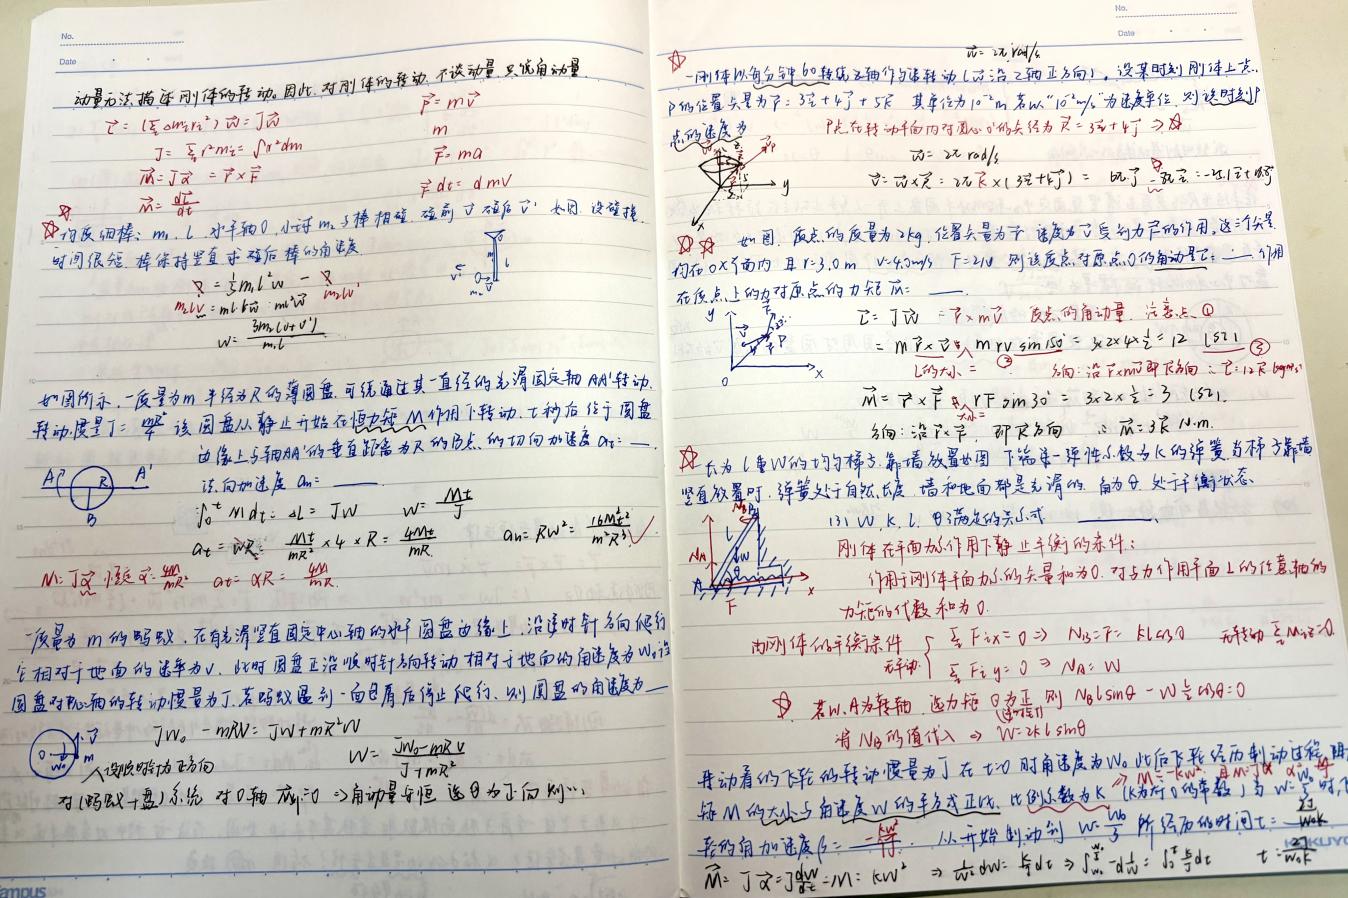 No.
Date
动量方法描述刚体的转动。因此,对刚体的转动,不谈动量,只说角动量
L⃗ = (Σ Δmᵢrᵢ²) ω⃗ = Jω⃗
P⃗ = mv⃗
J = Σ r²mᵢ = ∫r²dm
m
M⃗ = Jα⃗ = r⃗ × F⃗
F⃗ = ma
M⃗ = dL⃗/dt
F⃗dt = dmV
匀质细棒: m₁, l, 水平轴O, 小球m₂与棒相碰, 碰前 v⃗ 碰后 v⃗' 如图, 设碰撞
时间很短, 棒保持竖直 求碰后棒的角速度
= ⅓m₁l²ω -
m₂lv
m₂lv'
ω = 3m₂(v+v')/m₁l
如图所示, 一质量为m 半径为R的薄圆盘, 可绕通过其一直径的光滑固定轴AA'转动,
转动惯量J = mR²/4 该圆盘从静止开始在恒力矩M作用下转动, t秒后位于圆盘
边缘上与轴AA'的垂直距离为R的B点的切向加速度 aₜ = __
A R A'
B
法向加速度 aₙ = ____
∫₀ᵗ M dt = ΔL = Jω ω = Mt/J
× 4 × R = aₙ = Rω² = 16M²t²/m²R³
M = Jα⃗ 恒定 α⃗ = 4M/mR² aₜ = αR = 4M/mR
一质量为m的蚂蚁, 在有光滑竖直固定中心轴的水平圆盘边缘上, 沿逆时针方向爬行
它相对于地面的速率为v, 此时圆盘正沿顺时针方向转动 相对于地面的角速度为ω₀, 设
圆盘对中心轴的转动惯量为J, 若蚂蚁遇到一面包屑后停止爬行, 则圆盘的角速度为__
Jω₀ - mRV = JW + mR²W
W = (Jω₀ - mRV)/(J + mR²)
设顺时针为正方向
对(蚂蚁+盘)系统 对O轴 =0 ⇒ 角动量守恒 选 为正向则…
ampus
No.
Date
ω⃗ = 2π rad/s
一刚体以每分钟60转绕z轴作匀速转动(ω⃗沿z轴正方向)。设某时刻刚体上一点
P的位置矢量为 r⃗ = 3i⃗ + 4j⃗ + 5k⃗ 其单位为10⁻²m, 若以“10⁻²m/s”为速度单位, 则该时刻P
点的速度为
P点在转动平面内对圆心O'的矢径为 R⃗ = 3i⃗ + 4j⃗ ⇒
ω⃗ = 2π rad/s
v⃗ = ω⃗ × R⃗ = 2πk⃗ × (3i⃗ + 4j⃗) = 6πj⃗ - 8πi⃗ = -25.1i⃗ + 18.8j⃗
如图, 质点的质量为2kg, 位置矢量为r⃗ 速度为v⃗ 受到力F⃗的作用, 这三个矢量
均在OXY面内 且 r=3.0m v=4.0m/s F=2N 则该质点对原点O的角动量L⃗ = __ 作用
在质点上的力对原点的力矩M⃗ = ___.
L⃗ = Jω⃗ = r⃗ × mv⃗ 质点的角动量 注意点①
= m r⃗ × v⃗ m rv sin150° = 3×2×4×½ = 12 (SI)
L的大小 = ② 方向: 沿r⃗×mv⃗即k⃗方向 ∴ L⃗ = 12k⃗ kg·m²/s
M⃗ = r⃗ × F⃗ rF sin30° = 3×2×½ = 3 (SI).
方向: 沿r⃗×F⃗, 即k⃗方向 ∴ M⃗ = 3k⃗ N·m.
长为l重W的均匀梯子, 靠墙放置如图 下端连一弹性系数为k的弹簧, 当梯子靠墙
竖直放置时, 弹簧处于自然长度 墙和地面都是光滑的 角为θ 处于平衡状态
(3) W, k, l, θ满足的关系式 ______
刚体在平面力系作用下静止平衡的条件:
作用于刚体平面力系的矢量和为0, 对与力作用平面⊥的任意轴的
力矩的代数和为0.
由刚体的平衡条件 Σ Fix = 0 ⇒ N_B = F = klcosθ 无转动 ΣMiz = 0.
无平动 Σ Fiy = 0 ⇒ N_A = W
若以A为转轴, 选力矩 为正 则 N_B l sinθ - W l/2 cosθ = 0
将N_B的值代入 ⇒ W = 2kl sinθ
转动着的飞轮的转动惯量为J 在t=0时角速度为ω₀ 此后飞轮经历制动过程, 阻
力矩M的大小与角速度ω的平方成正比, 比例系数为k (k为大于0的常数) 当ω = ω₀/3时, 飞
轮的角加速度β = ____. 从开始制动到 ω = ω₀/3 所经历的时间t = 2J/ω₀k
KOKUYO